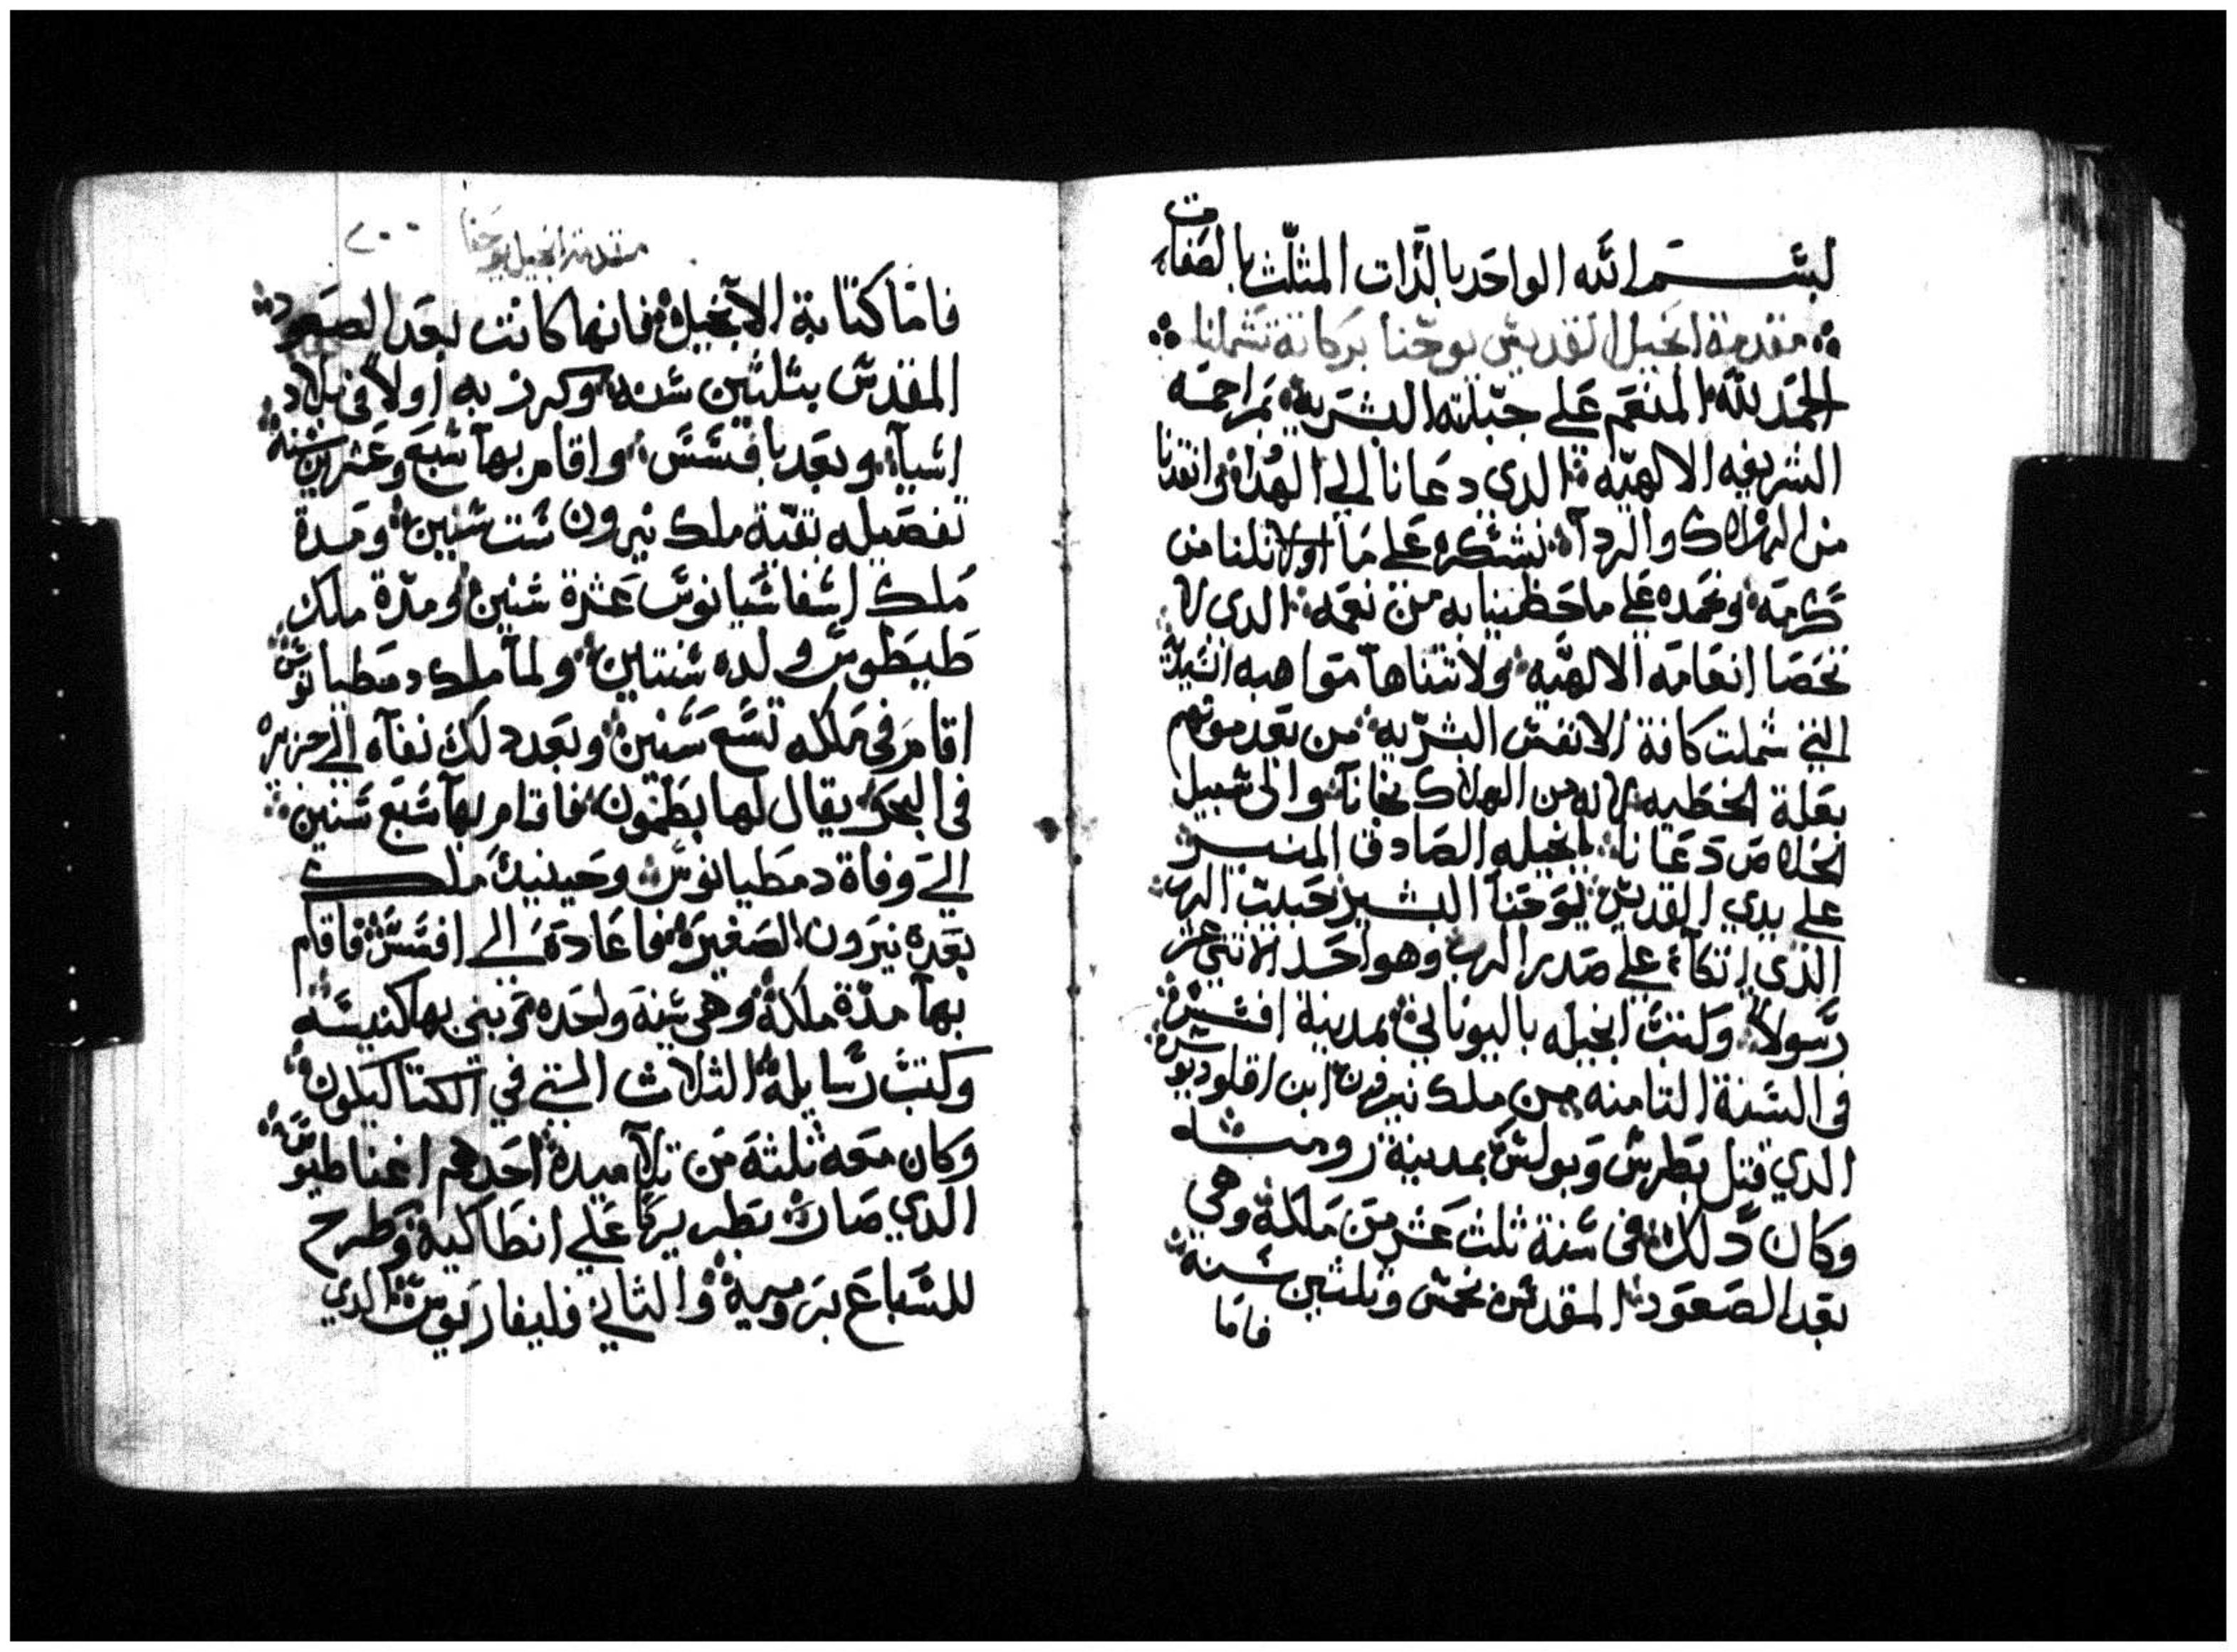 بسم الله الواحد بالذات المثلث بالصفات
مقدمة انجيل القديس يوحنا بركاته تشملنا
الحمد لله المنعم على جبلته البشرية بمراحمه
الشريفه الالهيه الدي دعانا الي الهداه وانقدنا
من الهلاك والردآ نشكره على ما اولانا من
كرمه ونحمده على ما حظينا به من نعمه الدي لا
تحصا انعامه الالهيه ولا تتناها مواهبه
التي شملت كافة الانفس البشريه من بعد موتهم
بعلة الخطيه من الهلاك نجانا والى سبيل
الخلاص دعانا بانجيله الصادق المنير
على يدي القديس يوحنا البشير حبيب الرب
الذي اتكآء على صدر الرب وهو احد الاتني عشر
رسولاً وكتب انجيله باليوناني بمدينة افسس
فى السنة التامنه من ملك نيرون ابن اقلوديوس
الدي قتل بطرس وبولس بمدينة روميه
وكان دلك فى سنة ثلث عشر من ملكه وهى
بعد الصعود المقدس بخمس وتلتين سنة
فاما
مقدمة انجيل يوحنا
٢٠٠
فاما كتابة الانجيل فانها كانت بعد الصعود
المقدس بتلتين سنه وكرز به اولاً فى بلاد
اسيا وبعد بافسس واقام بها سبع وعشرين سنة
تفصيله بقية ملك نيرون ست سنين ومدة
ملك اسفاسيانوس عشرة سنين ومدة ملك
طيطوس ولده سنتاين ولما ملك دمطيانوس
اقام فى ملكه تسع سنين وبعد دلك نفآه الى جزيره
فى البحر يقال لها بطمون فاقام بها سبع سنين
الى وفاة دمطيانوس وحينيد ملك
بعده نيرون الصغير فاعاده الى افسس فاقام
بها مدة ملكه وهى سنه واحده وبني بها كنيسه
وكتب رسايله الثلاث التي في الكتاكيلون
وكان معه ثلثه من تلاميده احدهم اغناطيوس
الدي صار بطريركا على انطاكيه وطرح
للسباع برومية والثاني فليفاربوس الدي